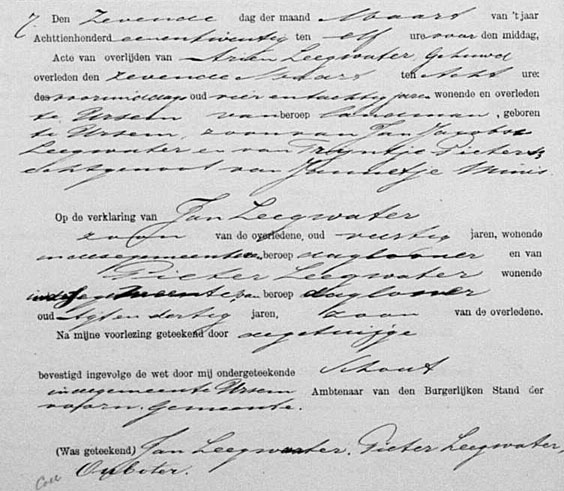 7. Den Zevende dag der maand Maart van 't jaar
Achttienhonderd eenentwintig ten elf ure voor den middag,
Acte van overlijden van Arian Leegwater, Gehuwd
overleden den zevende Maart ten acht ure:
des voormiddag oud vierentachtig jaren wonende en overleden
te Ursem van beroep landman, geboren
te Ursem, zoon van Jan Jacobsz
Leegwater en van Tryntje Pieters
echtgenoot van Jannetje
Op de verklaring van Jan Leegwater
zoon van de overledene, oud veertig jaren, wonende
in deze gemeente van beroep daglooner en van
Pieter Leegwater wonende
in deze gemeente, van beroep daglooner
oud vyf en dertig jaren, zoon van de overledene.
Na mijne voorlezing geteekend door de getuige
bevestigd ingevolge de wet door mij ondergeteekende Schout
in de gemeente Ursem Ambtenaar van den Burgerlijken Stand der
voorn. Gemeente.
(Was geteekend) Jan Leegwater, Pieter Leegwater,